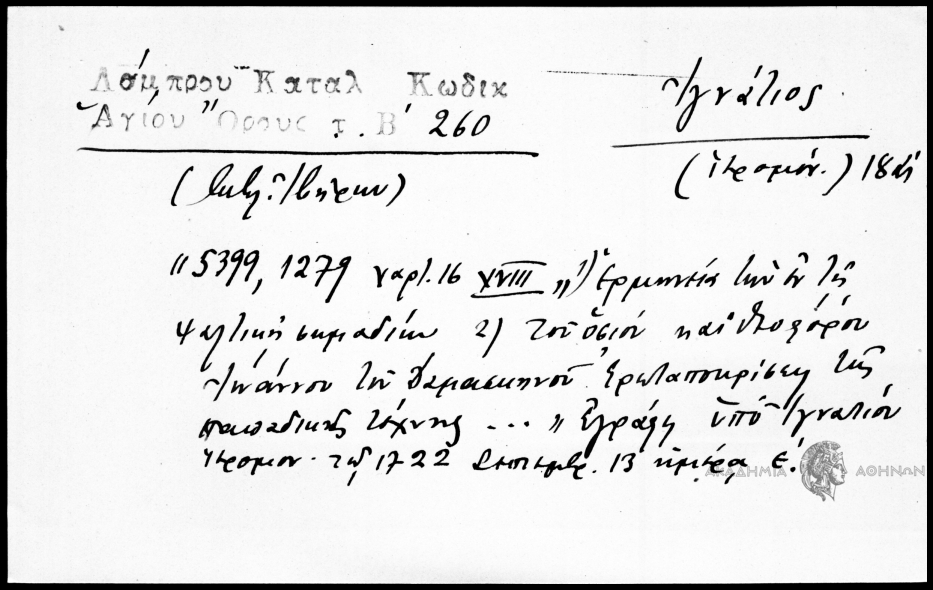 Λάμπρου Καταλ Κωδικ
Ἁγίου Ὄρους τ. Β' 260
Ἰγνάτιος
(Ἱερομόν.) 18
"5399, 1279 χαρτ. 16 XVIII "1) Ἑρμηνεία τῶν ἐν τῇ
ψαλτικῇ σημαδίων 2) Τοῦ ὁσίου καὶ θεοφόρου
Ἰωάννου τοῦ Δαμασκηνοῦ Ἐρωταποκρίσεις τῆς
παπαδικῆς τέχνης ... "Ἐγράφη ὑπὸ Ἰγνατίου
Ἱερομον. τῷ 1722 Σεπτεμβρ. 13 ἡμέρᾳ ε'.
ΑΚΑΔΗΜΙΑ ΑΘΗΝΩΝ